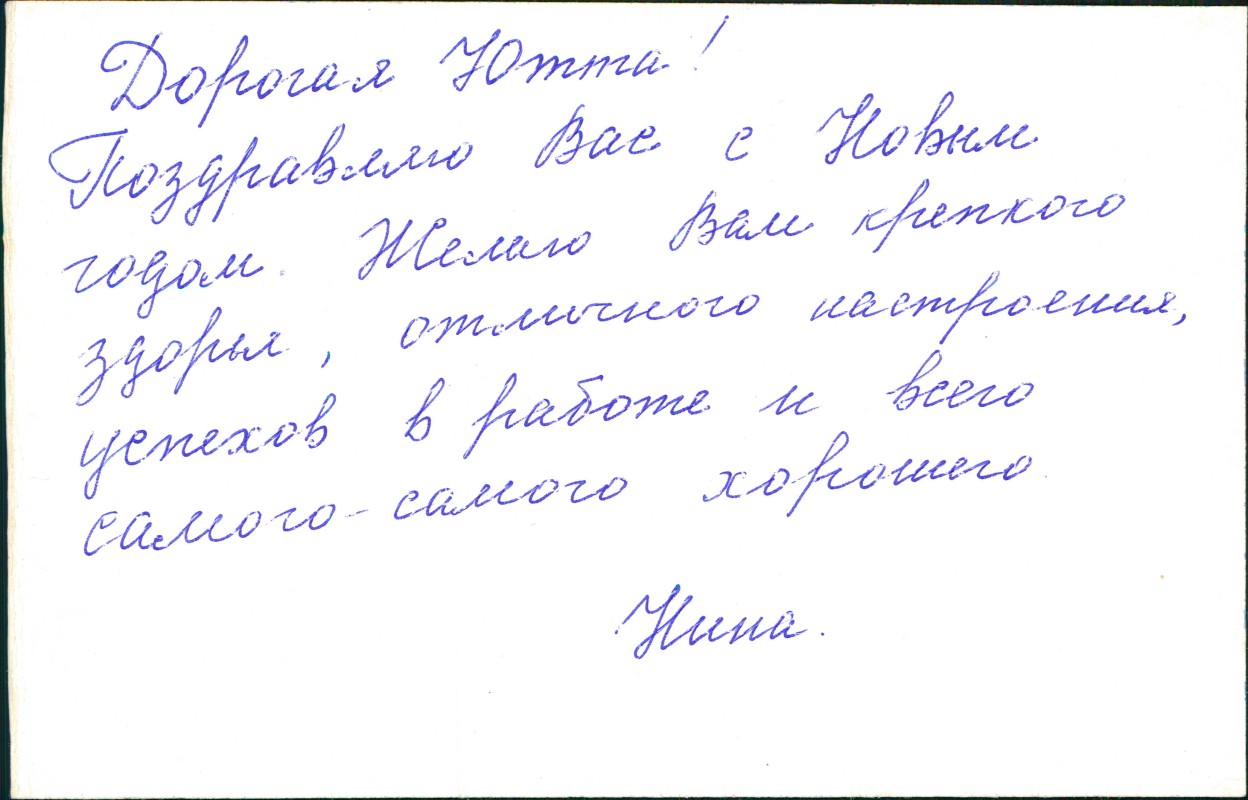 Дорогая Ютта!
Поздравляю Вас с Новым
годом. Желаю Вам крепкого
здорья, отличного настроения,
успехов в работе и всего
самого-самого хорошего
Нина.